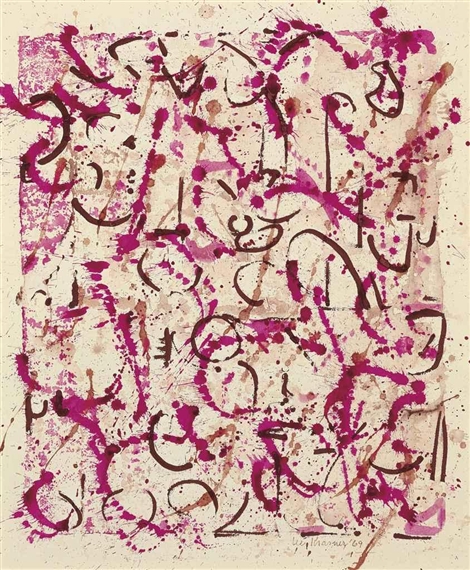 Lee Krasner '69